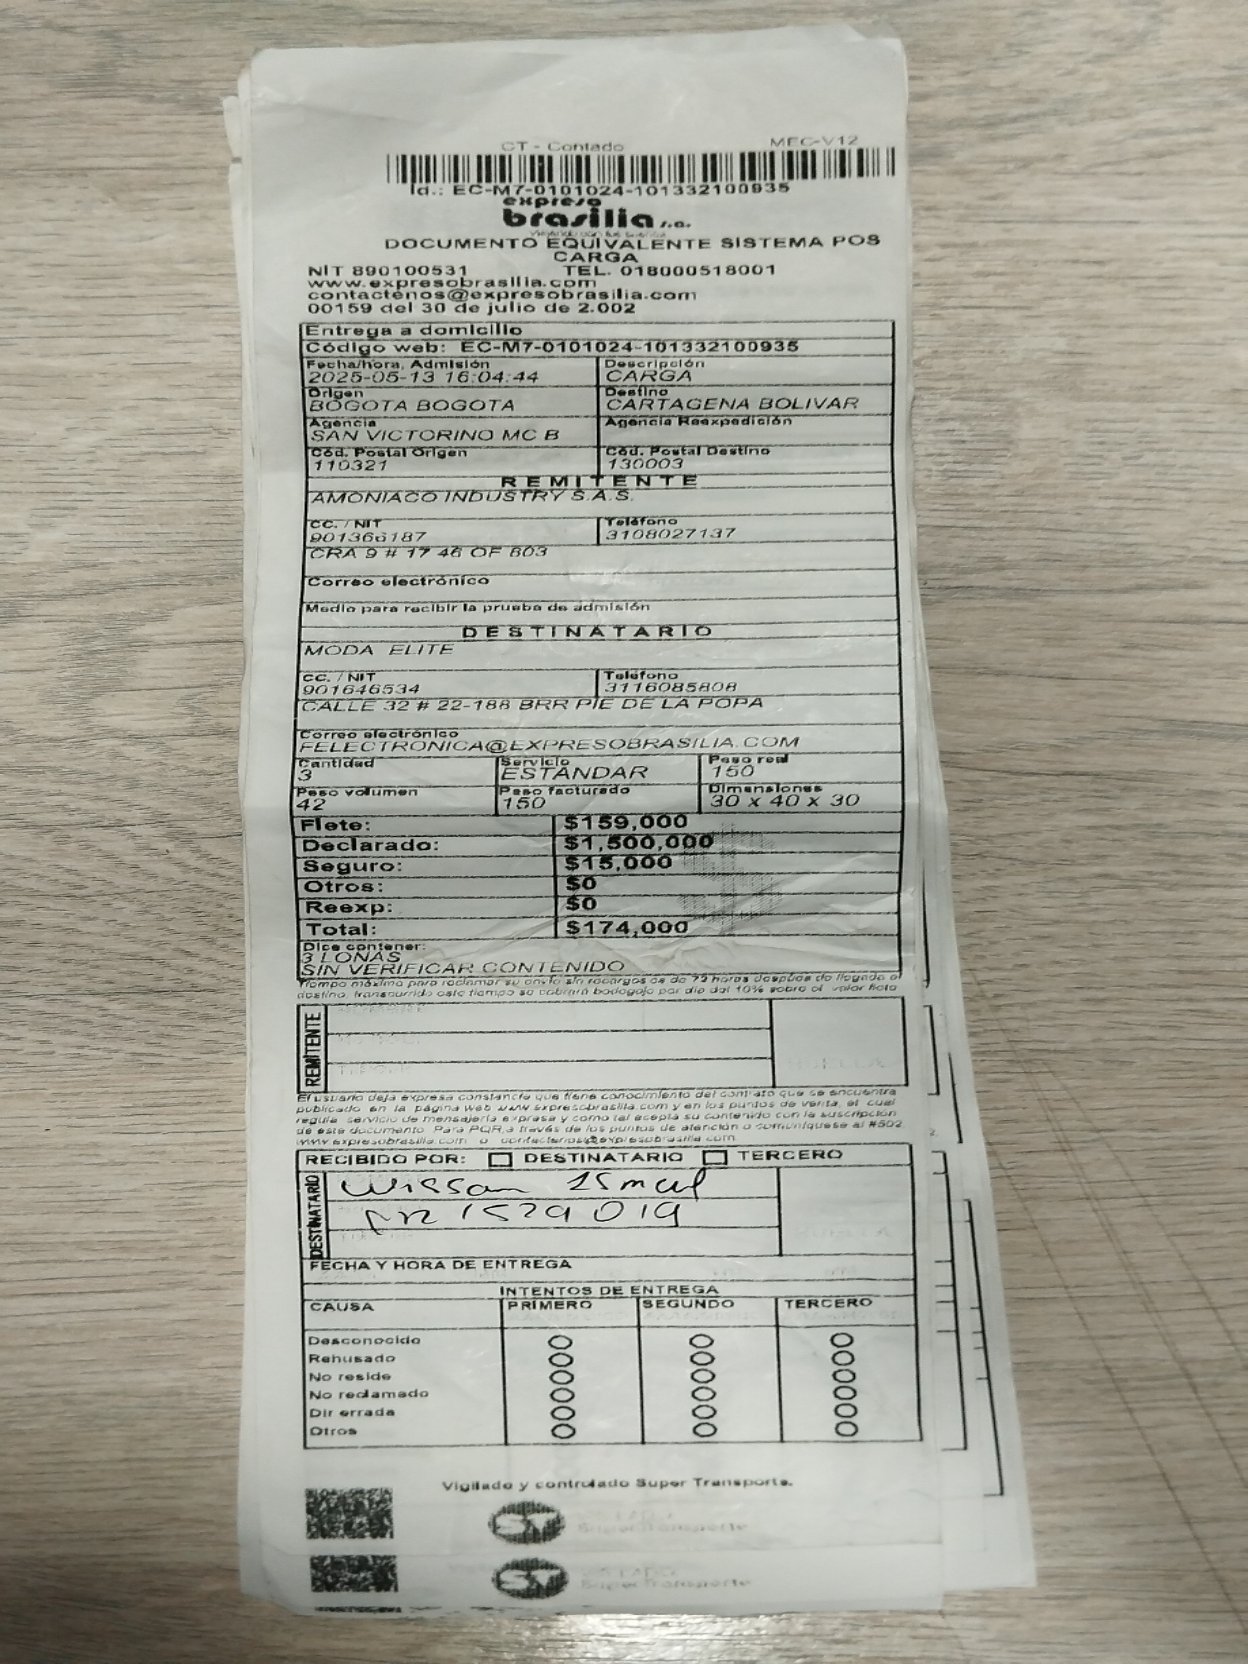 CT - Contado MEC-V12
Id.: EC-M7-0101024-101332100935
expreso
brasilia s.a.
DOCUMENTO EQUIVALENTE SISTEMA POS
CARGA
NIT 890100531 TEL. 018000518001
www.expresobrasilia.com
contactenos@expresobrasilia.com
00159 del 30 de julio de 2.002
Entrega a domicilio
Código web: EC-M7-0101024-101332100935
Fecha/hora, Admisión Descripción
2025-05-13 16:04:44 CARGA
Origen Destino
BOGOTA BOGOTA CARTAGENA BOLIVAR
Agencia Agencia Reexpedición
SAN VICTORINO MC B
Cód. Postal Origen Cód. Postal Destino
110321 130003
REMITENTE
AMONIACO INDUSTRY S.A.S.
CC. / NIT Teléfono
901366187 3108027137
CRA 9 # 17 46 OF 803
Correo electrónico
Medio para recibir la prueba de admisión
DESTINATARIO
MODA ELITE
CC. / NIT Teléfono
901646534 3116085808
CALLE 32 # 22-188 BRR PIE DE LA POPA
Correo electrónico
FELECTRONICA@EXPRESOBRASILIA.COM
Cantidad Servicio Peso real
3 ESTANDAR 150
Peso volumen Peso facturado Dimensiones
42 150 30 x 40 x 30
Flete: $159,000
Declarado: $1,500,000
Seguro: $15,000
Otros: $0
Reexp: $0
Total: $174,000
Dice contener:
3 LONAS
SIN VERIFICAR CONTENIDO
Tiempo máximo para reclamar su envío sin recargos es de 72 horas después de llegado a
destino, transcurrido este tiempo se cobrará bodegaje por día del 10% sobre el valor flete
REMITENTE
El usuario deja expresa constancia que tiene conocimiento del contrato que se encuentra
publicado en la página web www.expresobrasilia.com y en los puntos de venta, el cual
regula servicio de mensajería expresa y como tal acepta su contenido con la suscripción
de este documento. Para PQR a través de los puntos de atención o comuníquese al #502
www.expresobrasilia.com o contactenos@expresobrasilia.com
RECIBIDO POR: DESTINATARIO TERCERO
DESTINATARIO
Wissam Ismael
1529019
FECHA Y HORA DE ENTREGA
INTENTOS DE ENTREGA
CAUSA PRIMERO SEGUNDO TERCERO
Desconocido
Rehusado
No reside
No reclamado
Dir errada
Otros
Vigilado y controlado Super Transporte.
SuperTransporte
SuperTransporte